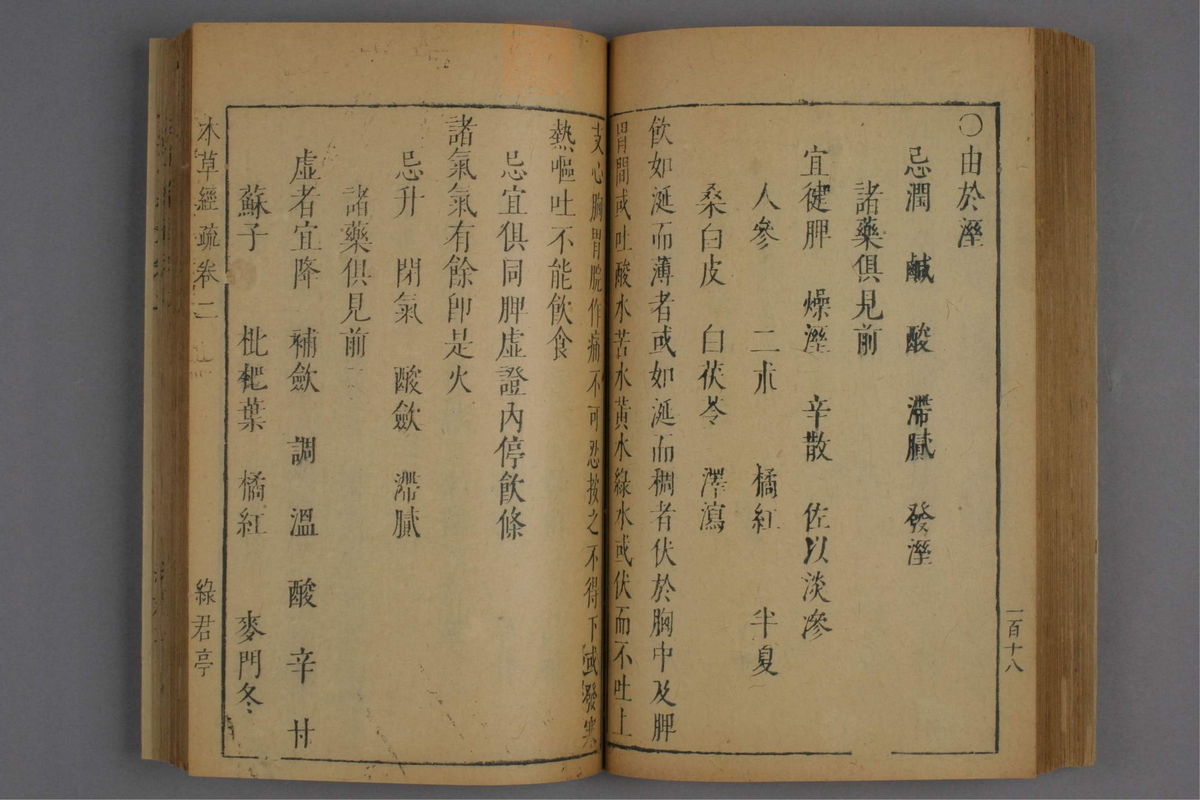 〇由於溼
忌潤　鹹　酸　滯膩　發溼
諸藥俱見前
宜健脾　燥溼　辛散　佐以淡滲
人參　二朮　橘紅　半夏
桑白皮　白茯苓　澤瀉
飲如涎而薄者或如涎而稠者伏於胸中及脾
胃間或吐酸水苦水黃水綠水或伏而不吐上
一百十八
支心胸胃脘作痛不可忍按之不得下或發寒
熱嘔吐不能飲食
忌宜俱同脾虛證內停飲條
諸氣氣有餘卽是火
忌升　閉氣　酸斂　滯膩
諸藥俱見前
虛者宜降　補斂　調　溫　酸　辛　甘
蘇子　枇杷葉　橘紅　麥門冬
本草經疏卷二　綠君亭